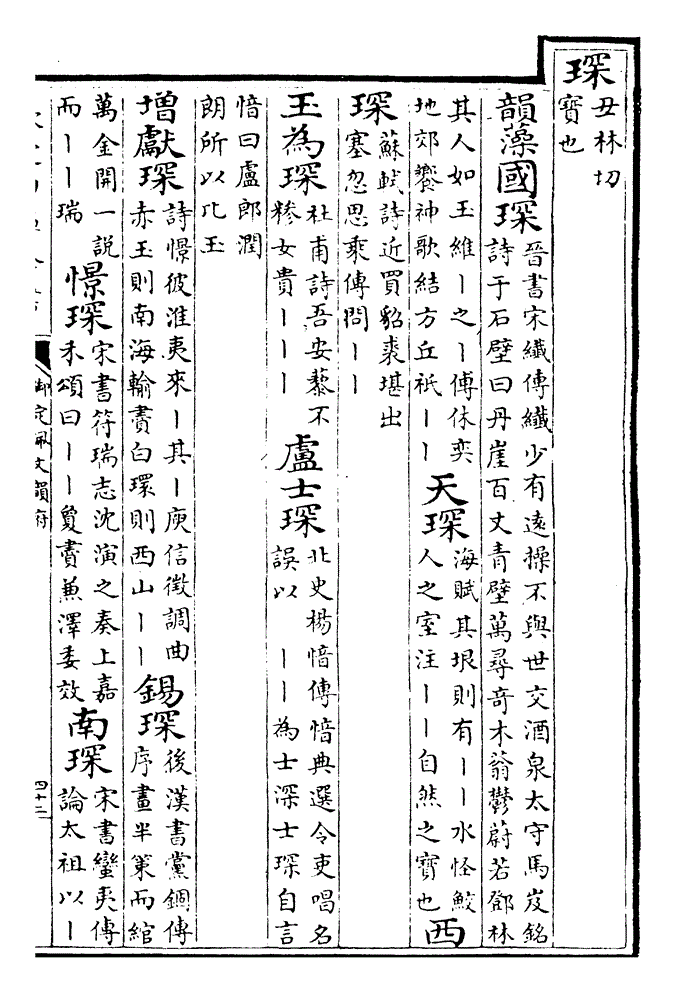 琛丑林切
寶也
韻藻國琛晉書宋纖傳纖少有遠操不與世交酒泉太守馬岌銘
詩于石壁曰丹崖百丈青壁萬尋奇木蓊鬱蔚若鄧林
其人如玉維丨之丨傅休奕
地郊饗神歌結方丘祇丨丨
天琛海賦其垠則有丨丨水怪鮫
人之室注丨丨自然之寶也
西
琛蘇軾詩近買貂裘堪出
塞忽思乘傳問丨丨
玉為琛杜甫詩吾安藜不
糝女貴丨丨丨
盧士琛北史楊愔傳愔典選令吏唱名
誤以丨丨為士深士琛自言
愔曰盧郎潤
朗所以比玉
增獻琛詩憬彼淮夷來丨其丨庾信徵調曲
赤玉則南海輸賮白環則西山丨丨
錫琛後漢書黨錮傳
序畫半策而綰
萬金開一說
而丨丨瑞
憬琛宋書符瑞志沈演之奏上嘉
禾頌曰丨丨奐賮兼澤委效
南琛宋書蠻夷傳
論太祖以丨
御定佩文韻府
四十二